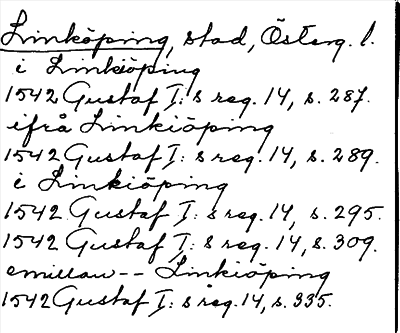 Linköping, stad, Österg. l.
i Linkiöping
1542 Gustaf I: s reg. 14, s. 287.
ifrå Linkiöping
1542 Gustaf I: s reg. 14, s. 289.
i Linkiöping
1542 Gustaf I: s reg. 14, s. 295.
1542 Gustaf I: s reg. 14, s. 309.
emillan -- Linkiöping
1542 Gustaf I: s reg. 14, s. 335.